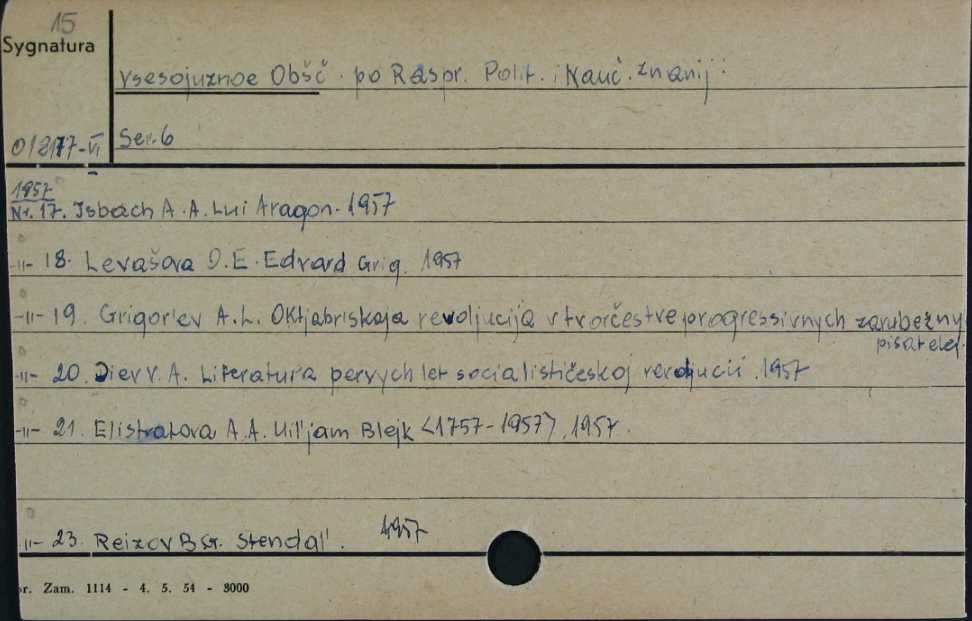 15
Sygnatura
Vsesojuznoe Obšč. po Raspr. Polit. i Nauč. znanij
012177-VI Ser. 6
1957
Nr. 17. Isbach A. A. Lui Aragon. 1957
-II- 18. Levašova O. E. Edvard Grig. 1957
-II- 19. Grigor'ev A. L. Oktjabriskaja revoljucija v tvorčestve progressivnych zarubežny
pisatelej.
-II- 20. Diev V. A. Literatura pervych let socialističeskoj revoljucii. 1957
-II- 21. Elistratova A. A. Uil'jam Blejk <1757-1957>. 1957.
-II- 23. Reizov B. G. Stendal'. 1957
or. Zam. 1114 - 4. 5. 54 - 8000